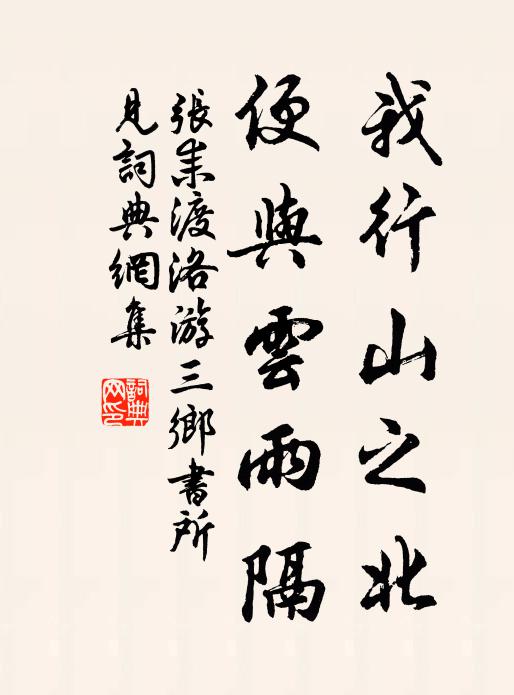 我行山之北
便與雲雨隔
張耒渡洛游三鄉書所
見詞典網集
詞典網印